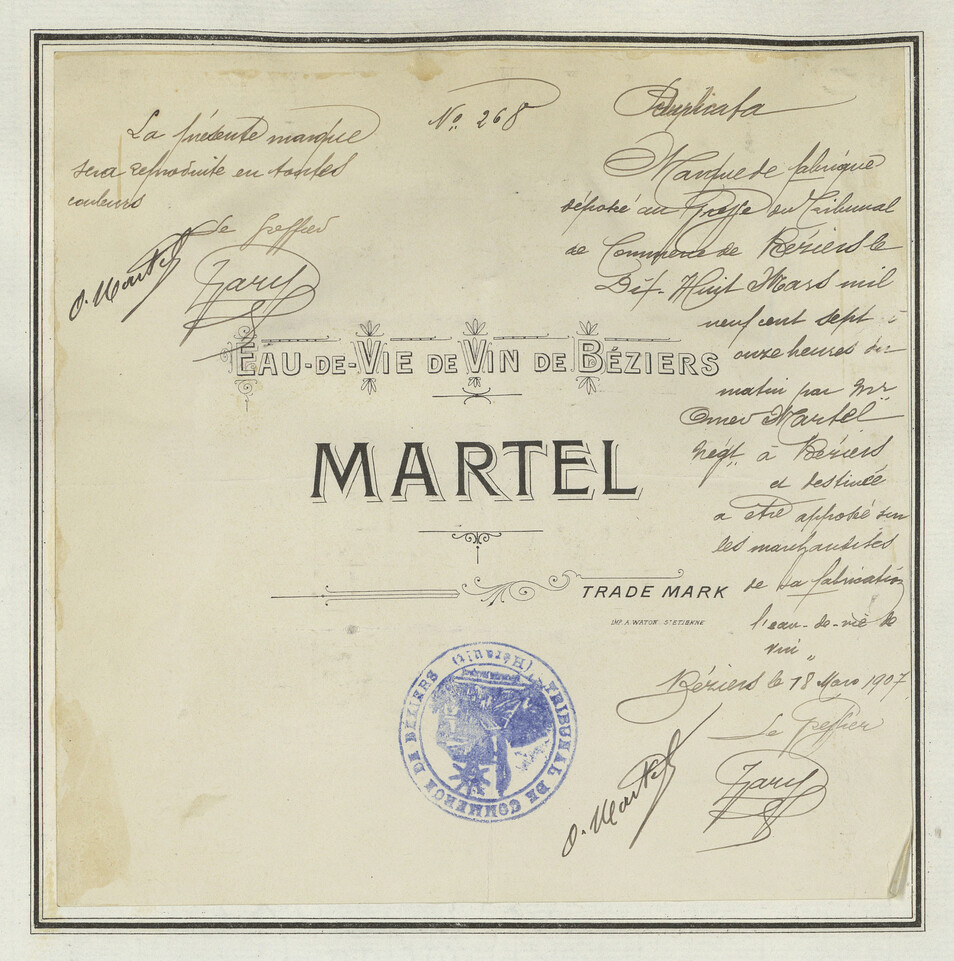 La présente marque
sera reproduite en toutes
couleurs
Le Greffier
O. Martel
No. 268
Duplicata
Marque de fabrique
déposé au Greffe du Tribunal
de Commerce de Béziers le
Dix-Huit Mars mil
neuf cent sept à
onze heures du
matin par Mr
Omer Martel
Négt à Béziers
et destinée
a être apposé sur
les marchandises
de sa fabrication
l'eau-de-vie de
vin "
Béziers le 18 Mars 1907
Le Greffier
O. Martel
EAU-DE-VIE DE VIN DE BÉZIERS
MARTEL
TRADE MARK
IMP. A. WATON. ST ETIENNE
TRIBUNAL DE COMMERCE DE BÉZIERS (Hérault)